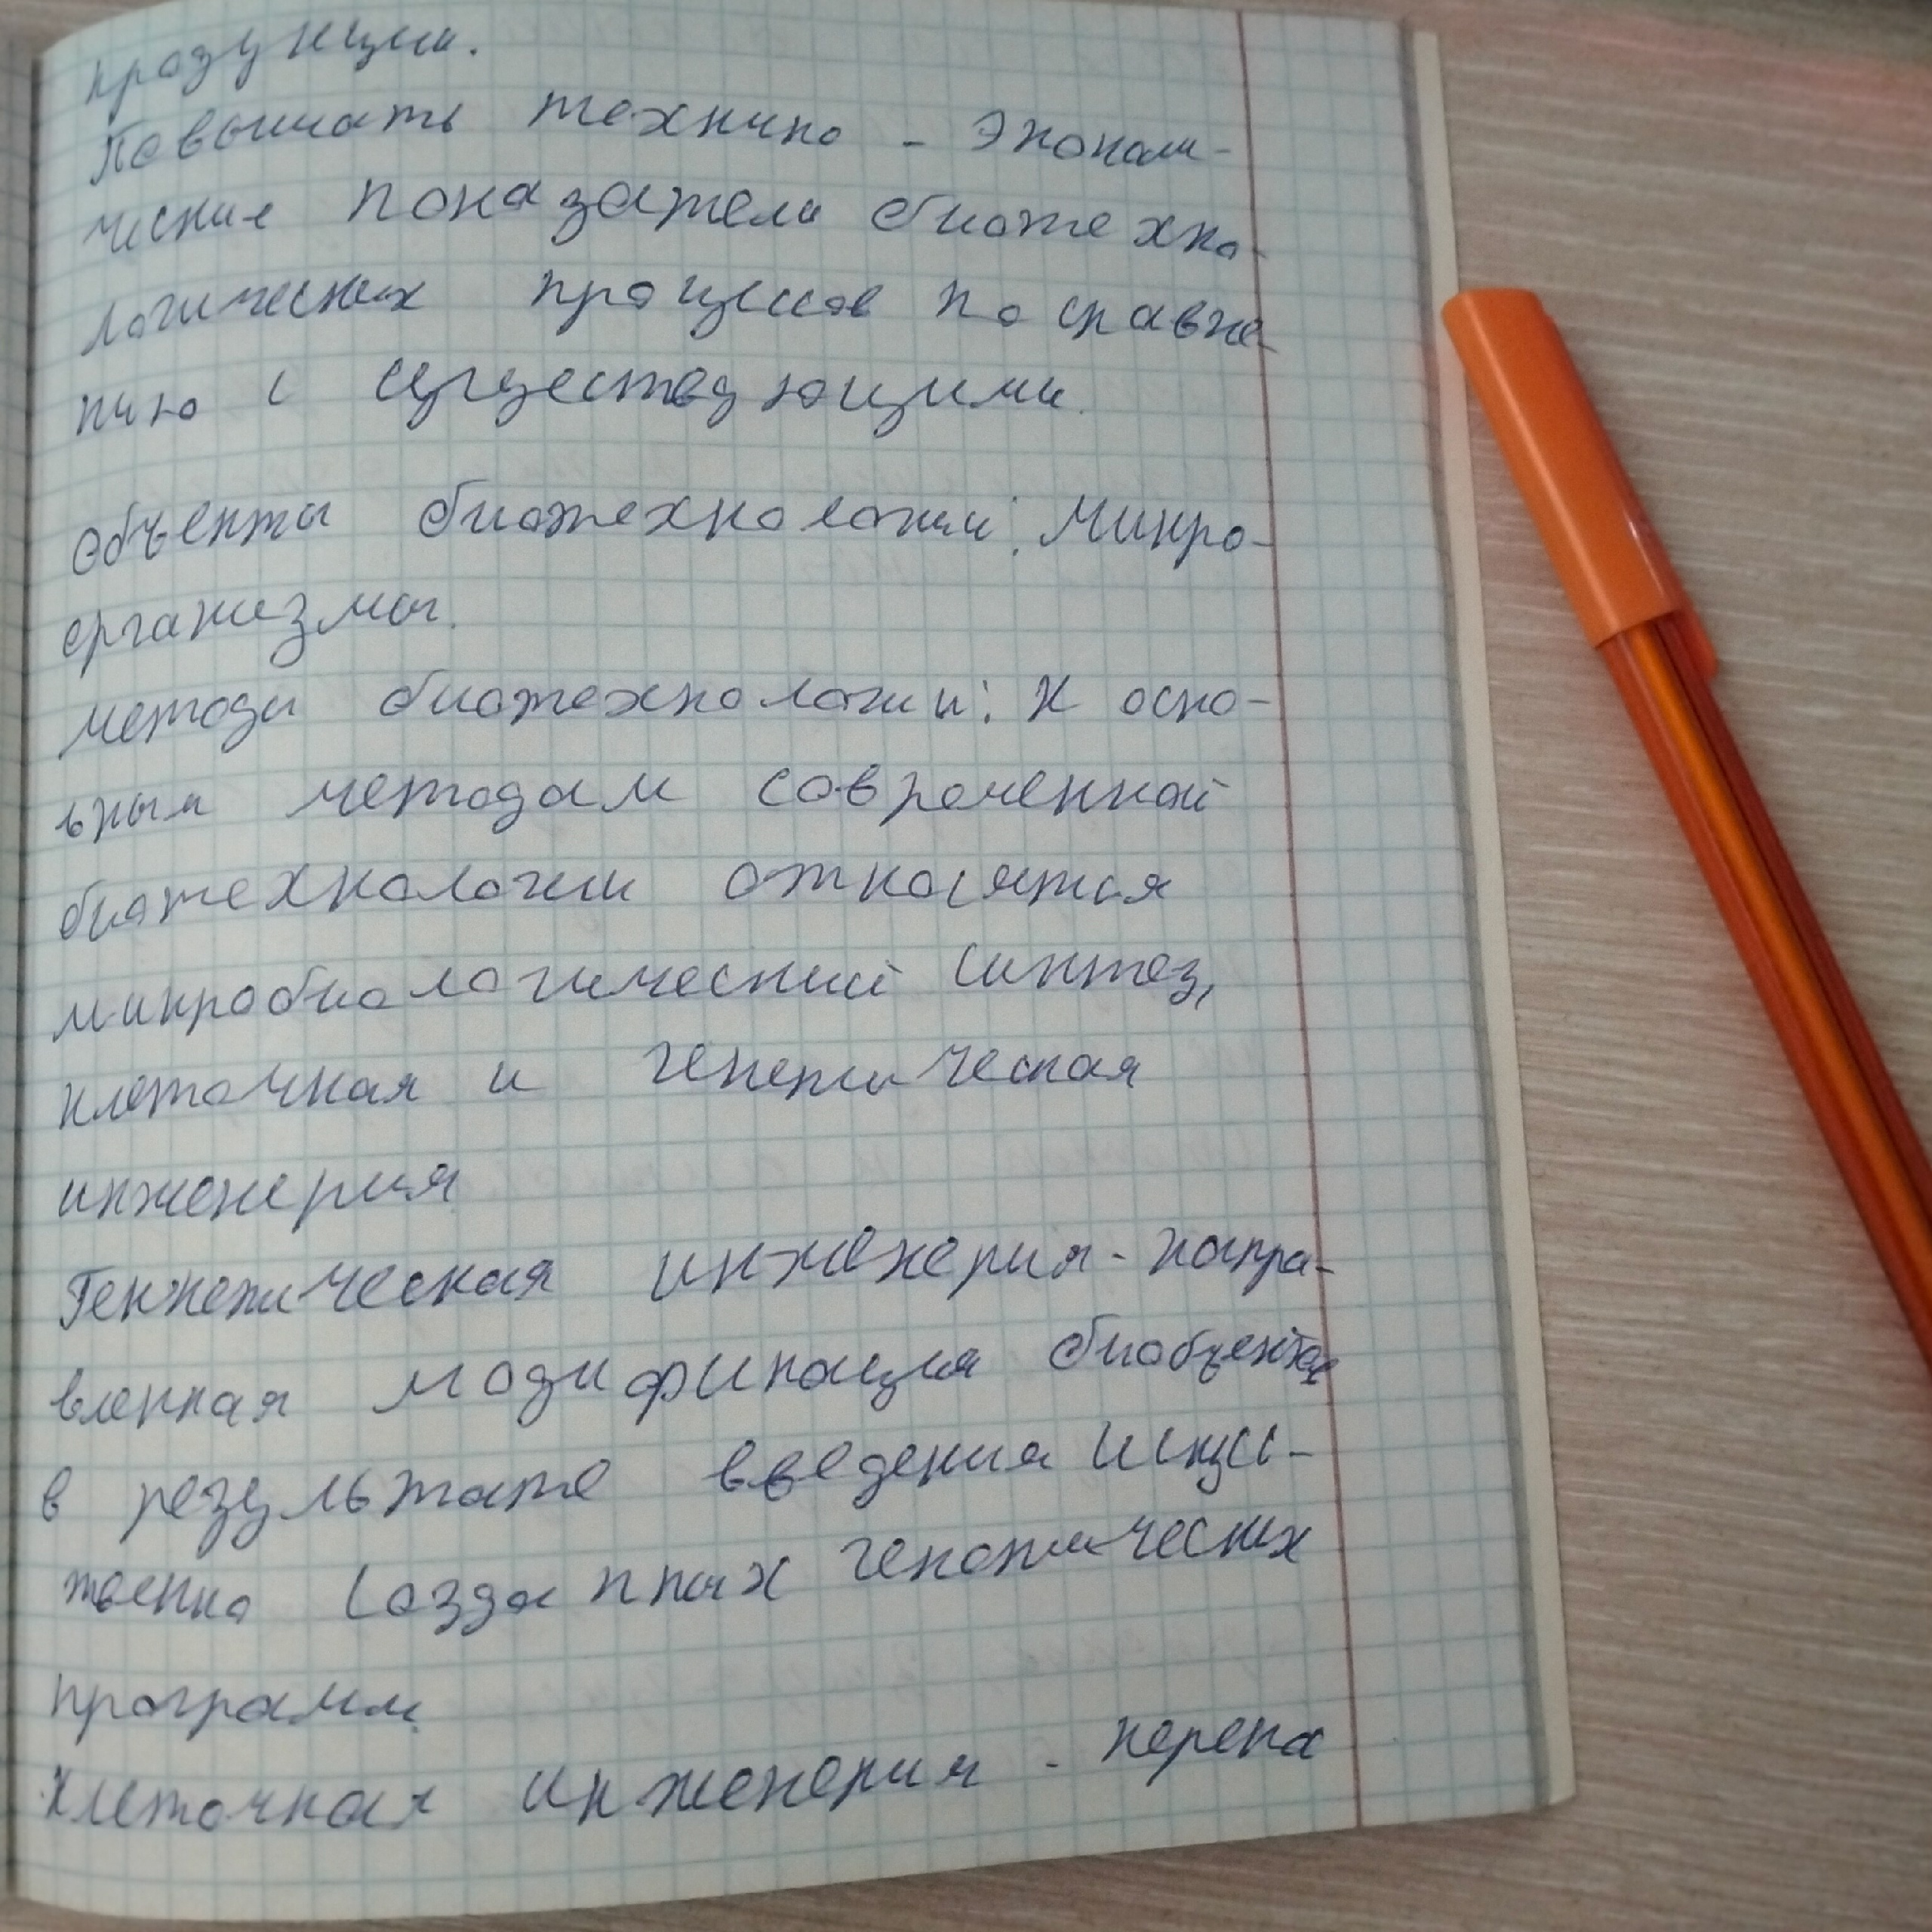 продукции.
Повышать технико - экономи-
ческие показатели биотехно-
логических процессов по сравне-
нию с существующими.
Объекты биотехнологии: Микро-
организмы.
методы биотехнологии: К осно-
вным методам современной
биотехнологии относятся
микробиологический синтез,
клеточная и генетическая
инженерия
Геннетическая инженерия - напра-
вленная модификация биобъектов
в результате введения искусс-
твенно созданных генетических
программ.
Клеточная инженерия - перена